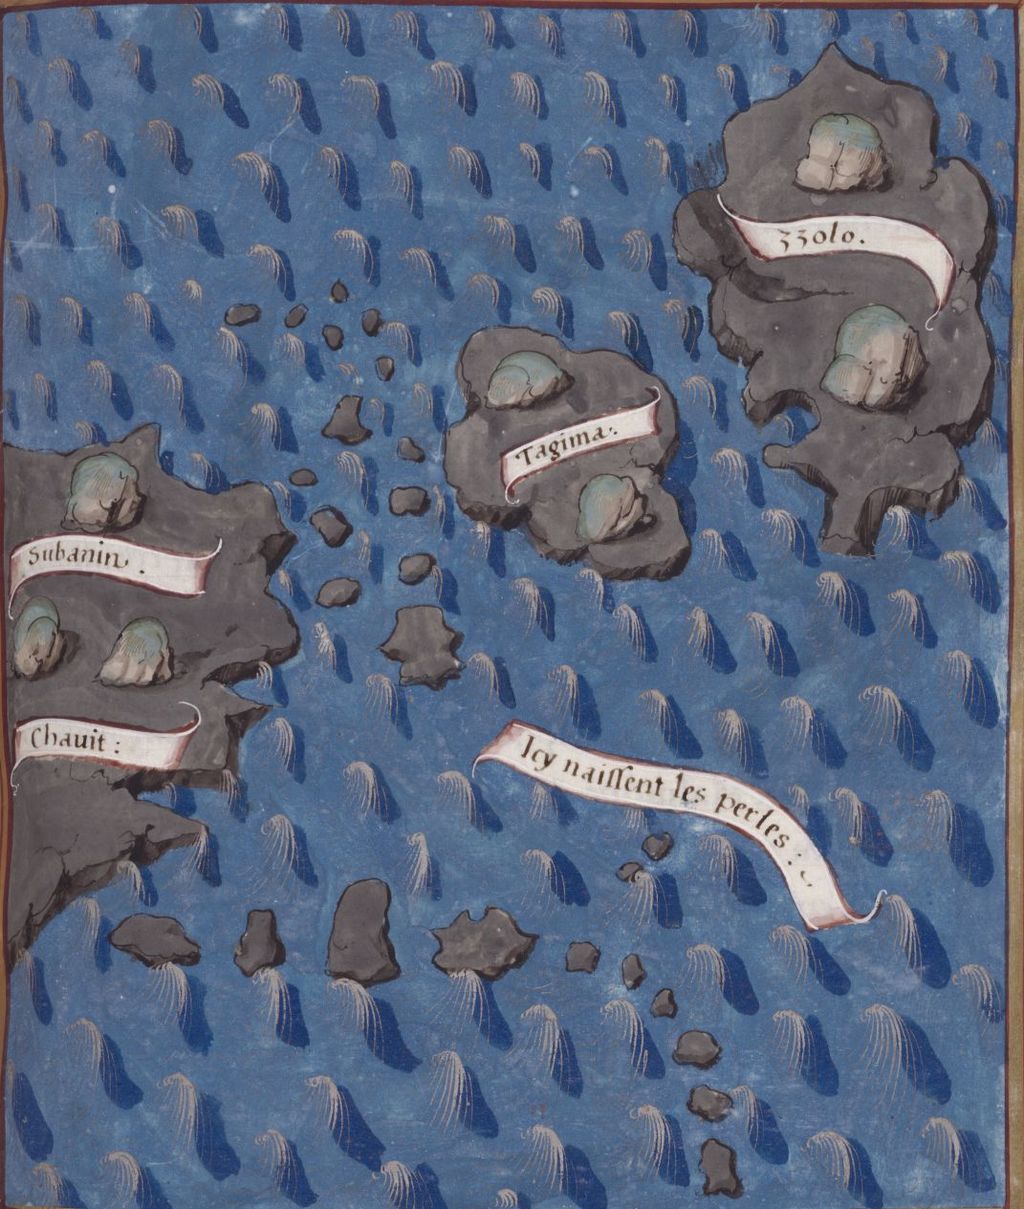 33olo.
Tagima:
Subanin.
Chauit:
Icy naissent les perles: